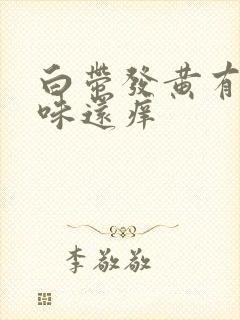 白帶發黃有
味還痒
李敬敬